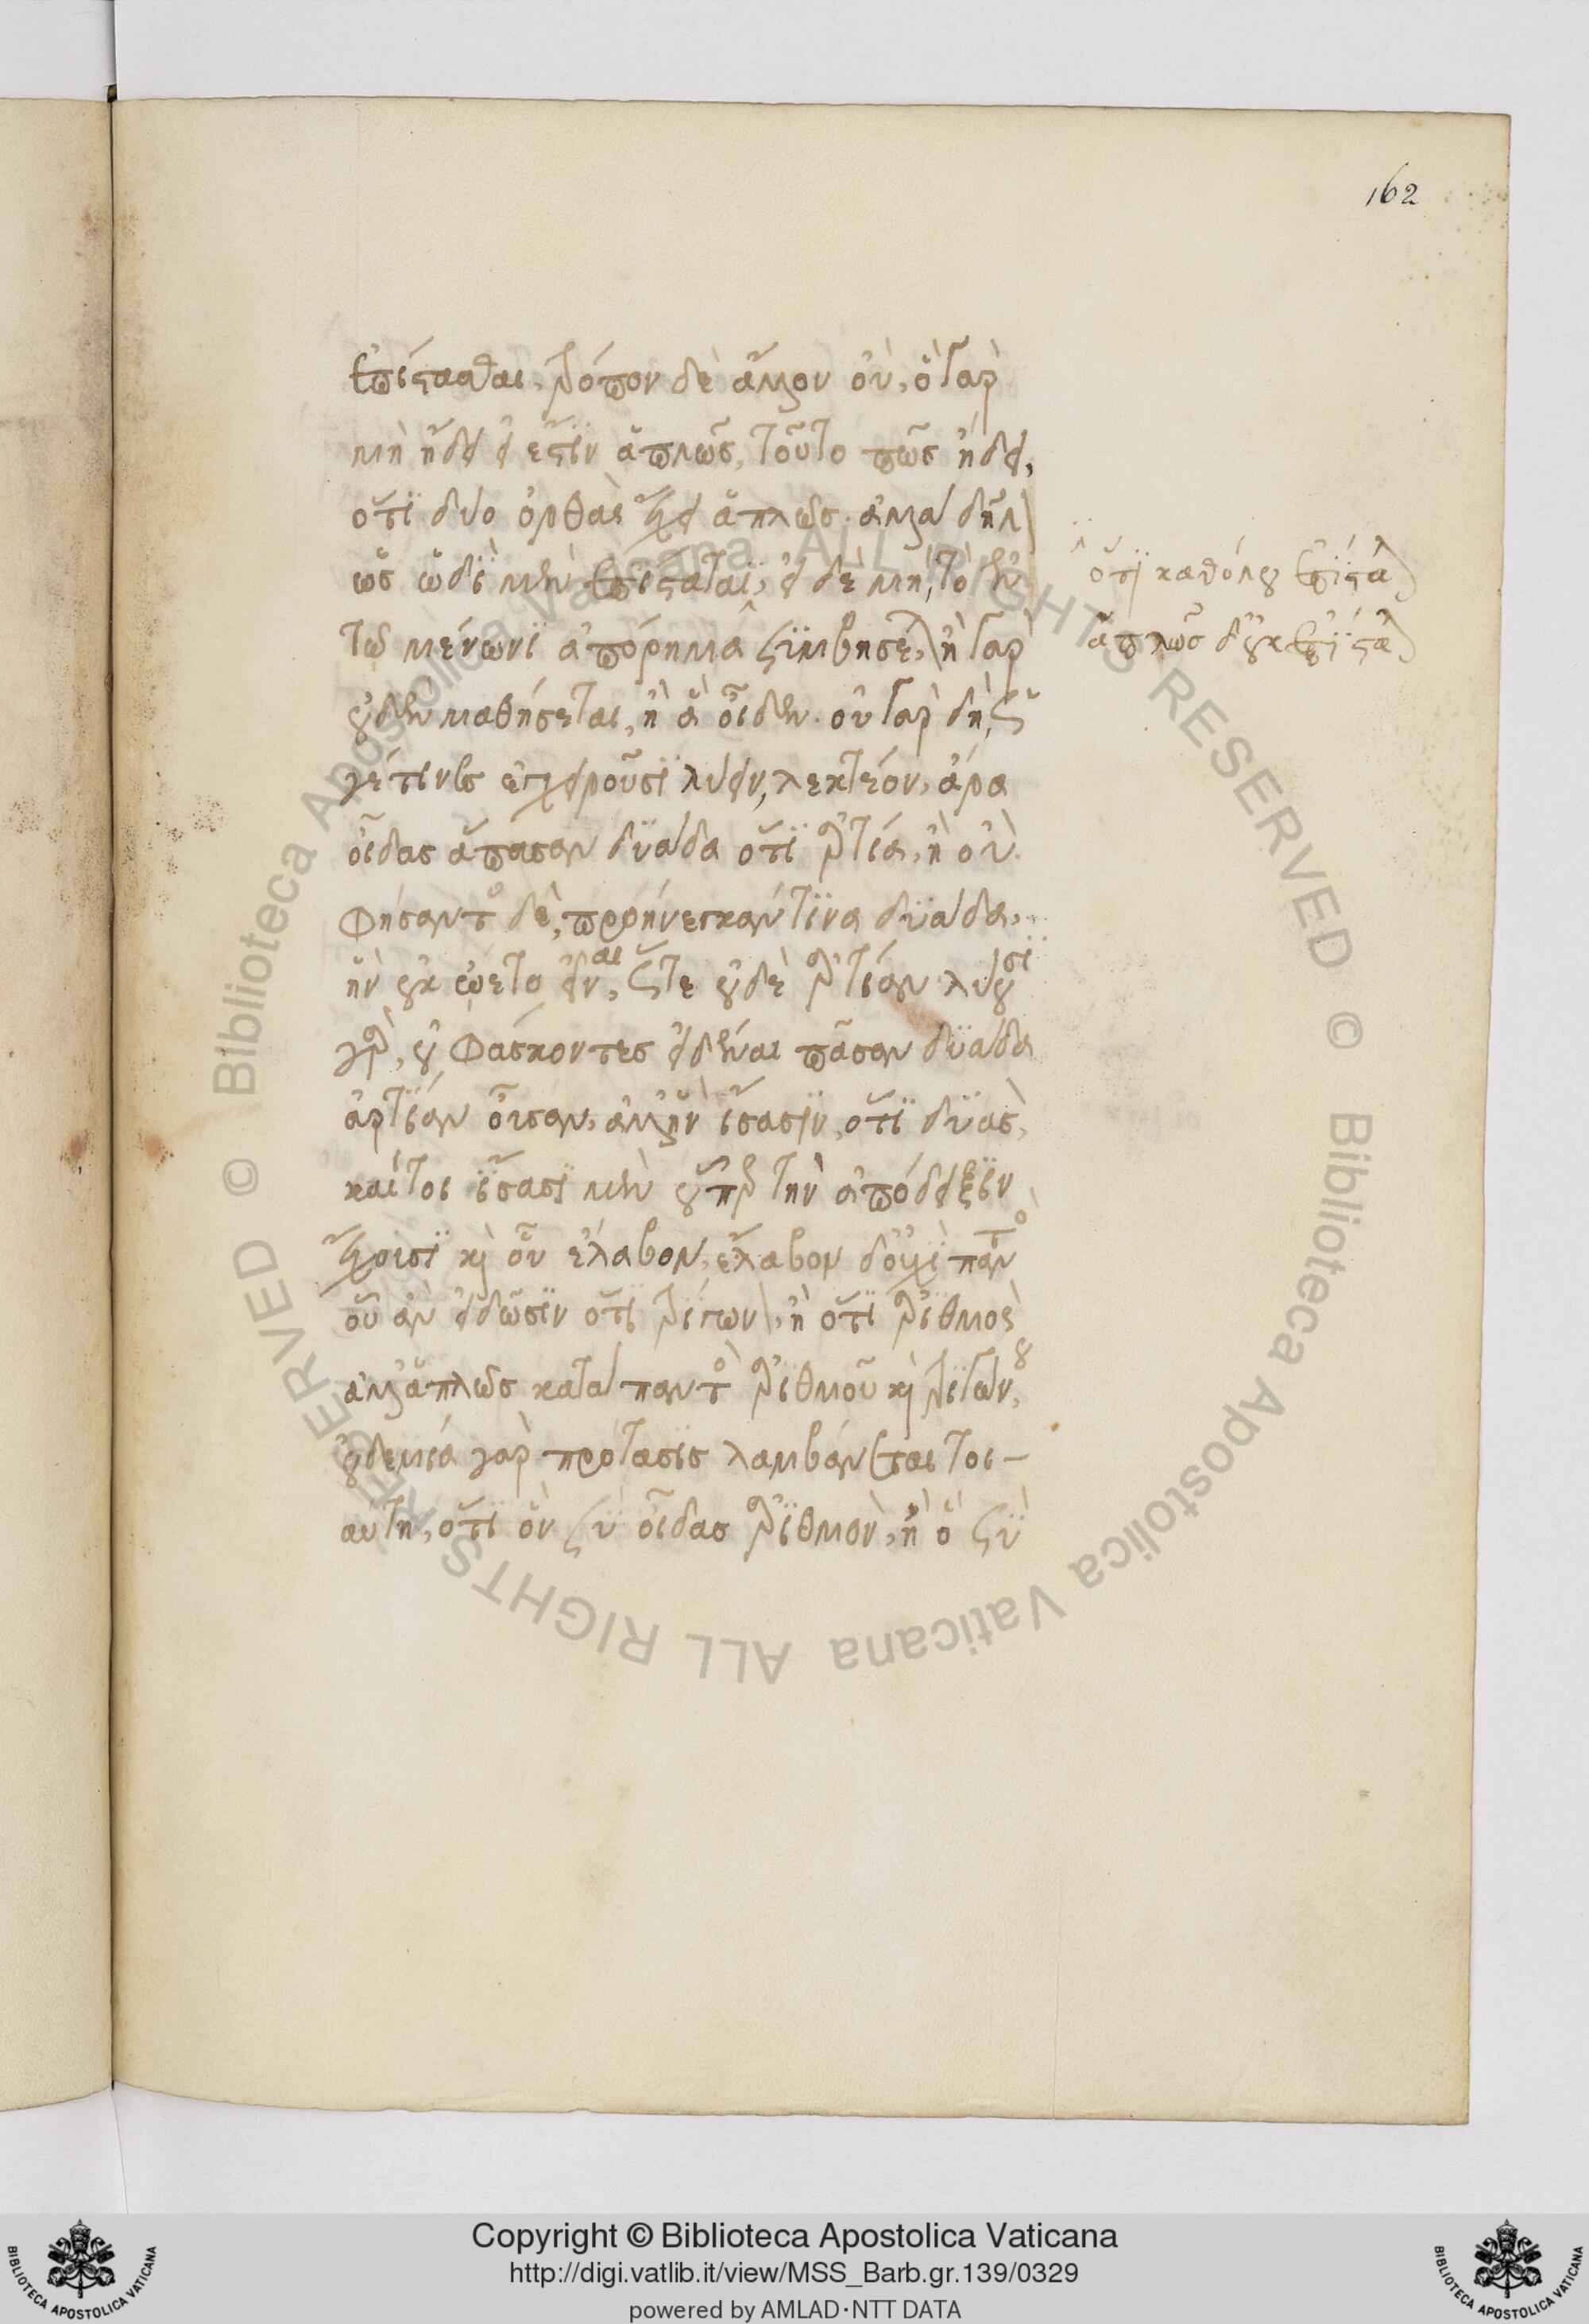 162
ἐπίστασθαι, τρόπον δὲ ἄλλον οὐ, ὃ γὰρ
μὴ ᾔδει εἰ ἔστιν ἁπλῶς, τοῦτο πῶς ᾔδει,
ὅτι δύο ὀρθὰς ἔχει ἁπλῶς. ἀλλὰ δῆλ
ὡς ὡδὶ μὲν ἐπίσταται, εἰ δὲ μὴ, τὸ ἐν
τῷ μένωνι ἀπόρημα συμβήσε, ἢ γὰρ
οὐδὲν μαθήσεται, ἢ ἃ οἶδεν. οὐ γὰρ δὴ, ὥς
γέ τινες ἐγχειροῦσι λύειν, λεκτέον, ἆρα
οἶδας ἅπασαν δυάδα ὅτι ἀρτία, ἢ οὐ.
φήσαντος δὲ, προήνεγκάν τινα δυάδα,
ἣν οὐκ ᾤετο εἶναι, ὥστε οὐδὲ ἀρτίαν λύουσι
γὰρ, οὐ φάσκοντες εἰδέναι πᾶσαν δυάδα
ἀρτίαν οὖσαν, ἀλλ' ἣν ἴσασιν, ὅτι δυὰς,
καίτοι ἴσασι μὲν οὗπερ τὴν ἀπόδειξιν
ἔχουσι καὶ οὗ ἔλαβον, ἔλαβον δ' οὐχὶ παντὸς
οὗ ἂν εἰδῶσιν ὅτι τρίγων, ἢ ὅτι ἀριθμὸς
ἀλλ' ἁπλῶς κατὰ παντὸς ἀριθμοῦ καὶ τριγώνου,
οὐδεμία γὰρ πρότασις λαμβάνεται τοι-
αύτη, ὅτι ὃν σὺ οἶδας ἀριθμὸν, ἢ ὃ σὺ
ὅτι καθόλου ἐπίστα
ἁπλῶς δ' οὐκ ἐπίστα
Copyright © Biblioteca Apostolica Vaticana
http://digi.vatlib.it/view/MSS_Barb.gr.139/0329
powered by AMLAD·NTT DATA
BIBLIOTECA APOSTOLICA VATICANA
BIBLIOTECA APOSTOLICA VATICANA
© Biblioteca Apostolica Vaticana ALL RIGHTS RESERVED © Biblioteca Apostolica Vaticana ALL RIGHTS RESERVED